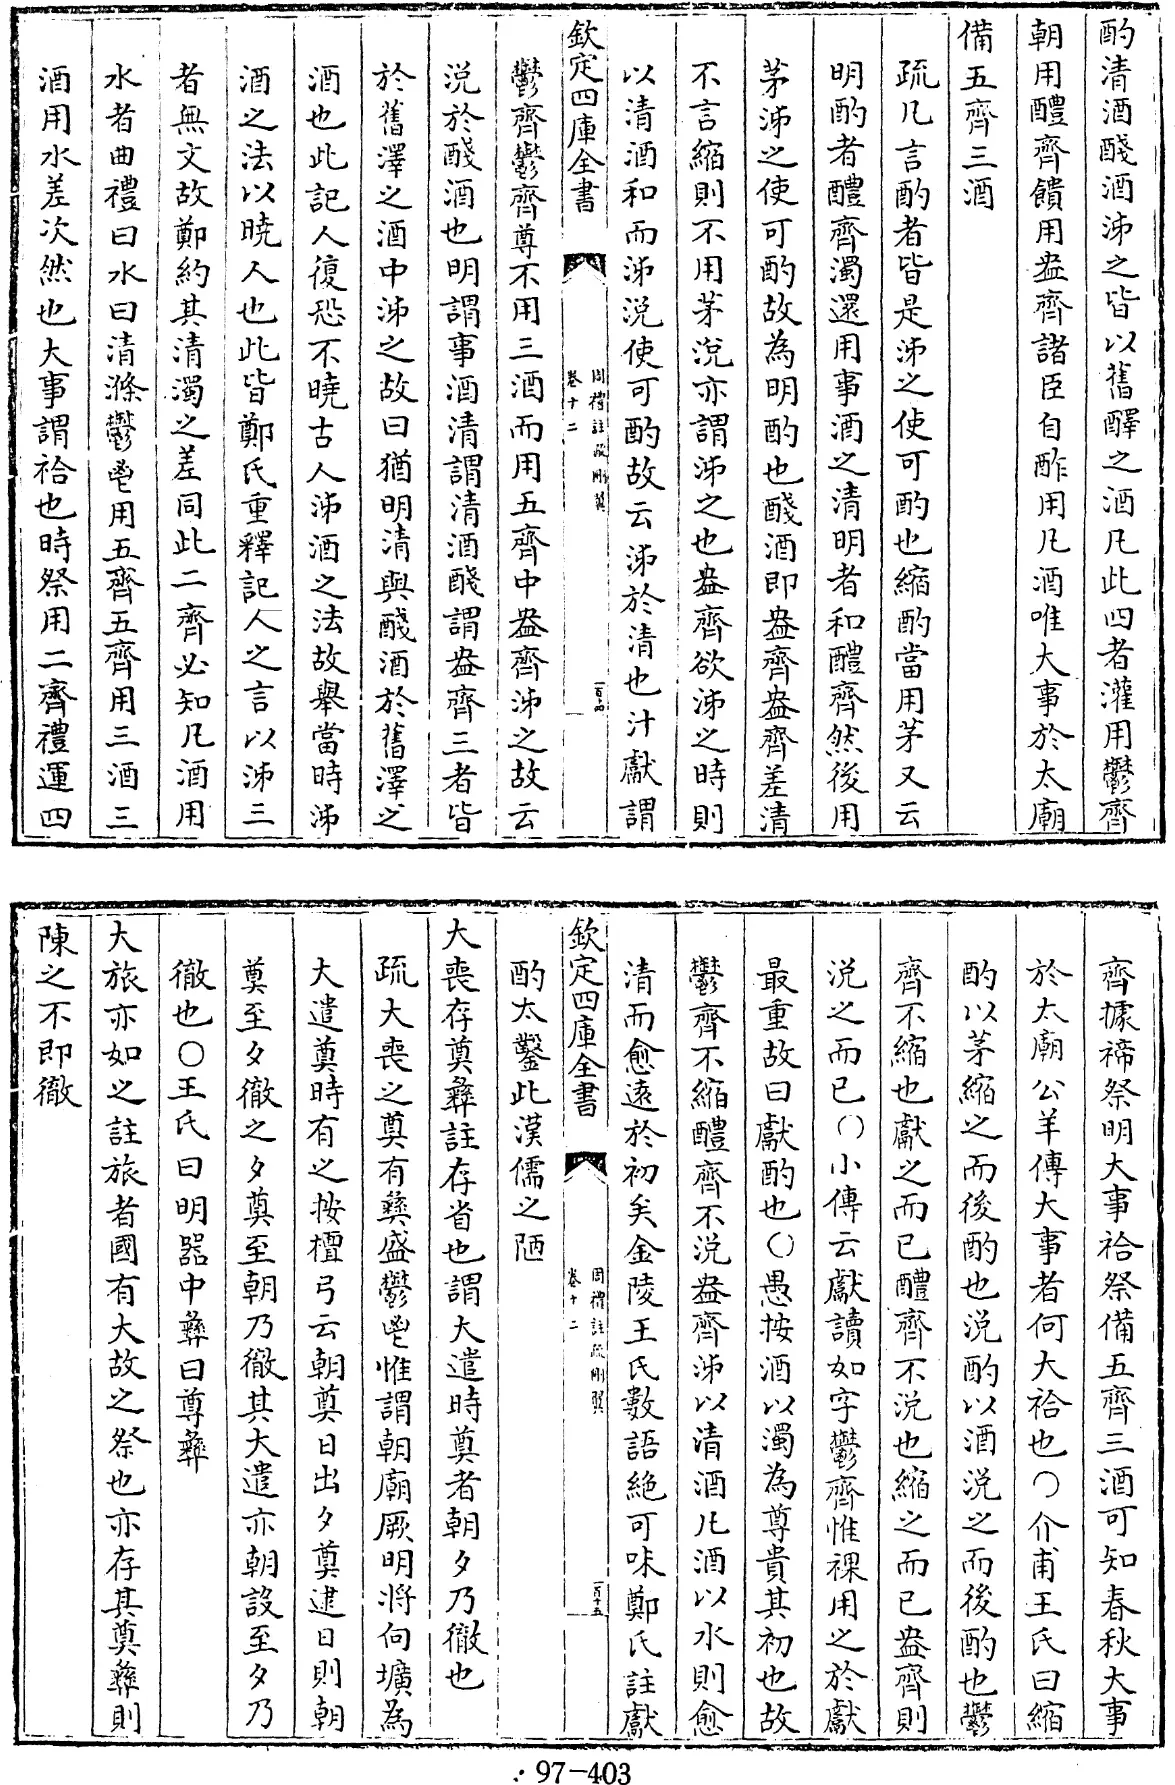 酌清酒醆酒泲之皆以舊醳之酒凡此四者灌用鬱齊
朝用醴齊饋用盎齊諸臣自酢用凡酒唯大事於太廟
備五齊三酒
疏凡言酌者皆是泲之使可酌也縮酌當用茅又云
明酌者醴齊濁還用事酒之清明者和醴齊然後用
茅泲之使可酌故為明酌也醆酒即盎齊盎齊差清
不言縮則不用茅涗亦謂泲之也盎齊欲泲之時則
以清酒和而泲涗使可酌故云泲於清也汁獻謂
欽定四庫全書
周禮註疏刪翼
卷十二
一百十四
鬱齊鬱齊尊不用三酒而用五齊中盎齊泲之故云
涗於醆酒也明謂事酒清謂清酒醆謂盎齊三者皆
於舊澤之酒中泲之故曰猶明清與醆酒於舊澤之
酒也此記人復恐不曉古人泲酒之法故舉當時泲
酒之法以曉人也此皆鄭氏重釋記人之言以泲三
者無文故鄭約其清濁之差同此二齊必知凡酒用
水者曲禮曰水曰清滌鬱鬯用五齊五齊用三酒三
酒用水差次然也大事謂祫也時祭用二齊禮運四
齊據禘祭明大事祫祭備五齊三酒可知春秋大事
於太廟公羊傳大事者何大祫也〇介甫王氏曰縮
酌以茅縮之而後酌也涗酌以酒涗之而後酌也鬱
齊不縮也獻之而已醴齊不涗也縮之而已盎齊則
涗之而已〇小傳云獻讀如字鬱齊惟祼用之於獻
最重故曰獻酌也〇愚按酒以濁為尊貴其初也故
鬱齊不縮醴齊不涗盎齊泲以清酒凡酒以水則愈
清而愈遠於初矣金陵王氏數語絶可味鄭氏註獻
欽定四庫全書
周禮註疏刪翼
卷十二
一百十五
酌太鑿此漢儒之陋
大喪存奠彝註存省也謂大遣時奠者朝夕乃徹也
疏大喪之奠有彝盛鬱鬯惟謂朝廟厥明將向壙為
大遣奠時有之按檀弓云朝奠日出夕奠逮日則朝
奠至夕徹之夕奠至朝乃徹其大遣亦朝設至夕乃
徹也〇王氏曰明器中彝曰尊彝
大旅亦如之註旅者國有大故之祭也亦存其奠彝則
陳之不即徹
97-403